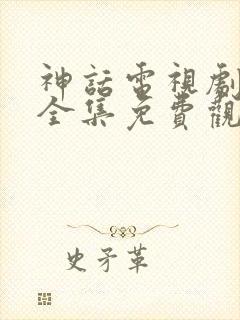 神話電視劇
全集免費觀
史矛革